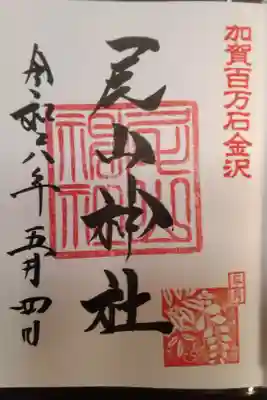 加賀百万石金沢
尾山神社
令和八年五月四日
尾山神社